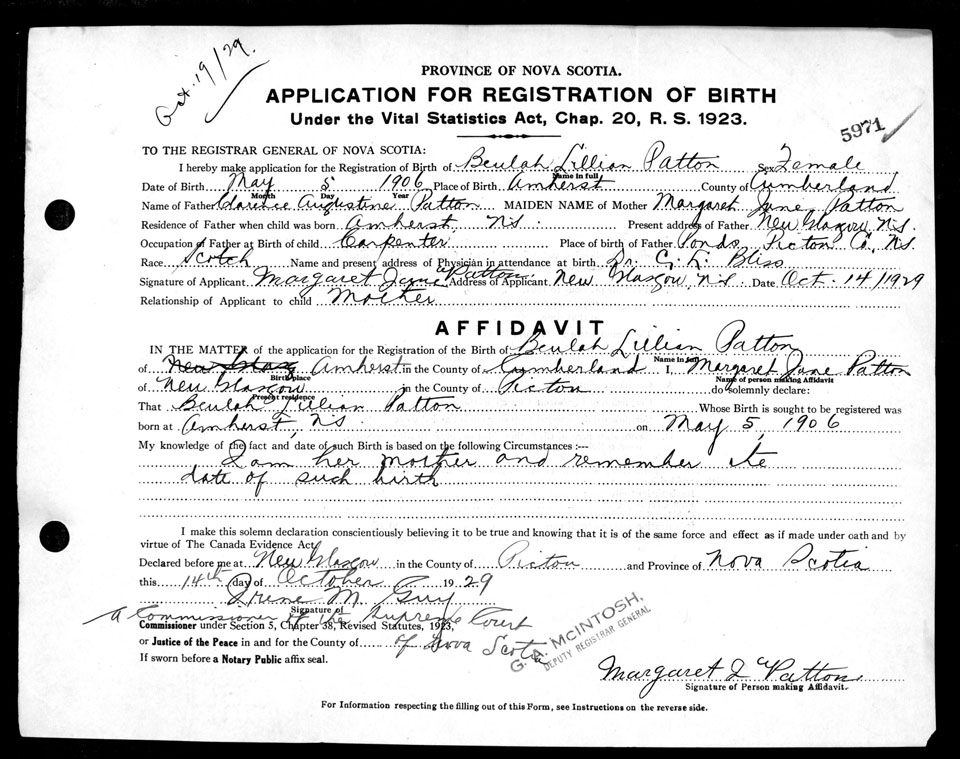 Oct. 19/29.
PROVINCE OF NOVA SCOTIA.
APPLICATION FOR REGISTRATION OF BIRTH
Under the Vital Statistics Act, Chap. 20, R. S. 1923.
5971
TO THE REGISTRAR GENERAL OF NOVA SCOTIA:
I hereby make application for the Registration of Birth of Beulah Lillian Patton Sex Female
Name in full
Date of Birth May 5 1906 Place of Birth Amherst County of Cumberland
Month Day Year
Name of Father Clarence Augustine Patton MAIDEN NAME of Mother Margaret Jane Patton
Residence of Father when child was born Amherst, N.S. Present address of Father New Glasgow N.S.
Occupation of Father at Birth of child Carpenter Place of birth of Father Ponds, Picton Co., N.S.
Race Scotch Name and present address of Physician in attendance at birth Dr. C. L. Bliss
Signature of Applicant Margaret Jane Patton Address of Applicant New Glasgow, N.S. Date Oct. 14/1929
Relationship of Applicant to child Mother
AFFIDAVIT
IN THE MATTER of the application for the Registration of the Birth of Beulah Lillian Patton
Name in full
of New Glasg Amherst in the County of Cumberland I, Margaret Jane Patton
Birth place Name of person making Affidavit
of New Glasgow in the County of Picton do solemnly declare:
Present residence
That Beulah Lillian Patton Whose Birth is sought to be registered was
born at Amherst, N.S. on May 5, 1906
My knowledge of the fact and date of such Birth is based on the following Circumstances :—
I am her mother and remember the
date of such birth
I make this solemn declaration conscientiously believing it to be true and knowing that it is of the same force and effect as if made under oath and by
virtue of The Canada Evidence Act.
Declared before me at New Glasgow in the County of Picton and Province of Nova Scotia
this 14th day of October 1929
Irene M. Guy
Signature of
A Commissioner of the Supreme Court
Commissioner under Section 5, Chapter 38, Revised Statutes, 1923,
or Justice of the Peace in and for the County of of Nova Scotia
If sworn before a Notary Public affix seal.
G. A. McINTOSH,
DEPUTY REGISTRAR GENERAL
Margaret J Patton
Signature of Person making Affidavit.
For Information respecting the filling out of this Form, see Instructions on the reverse side.